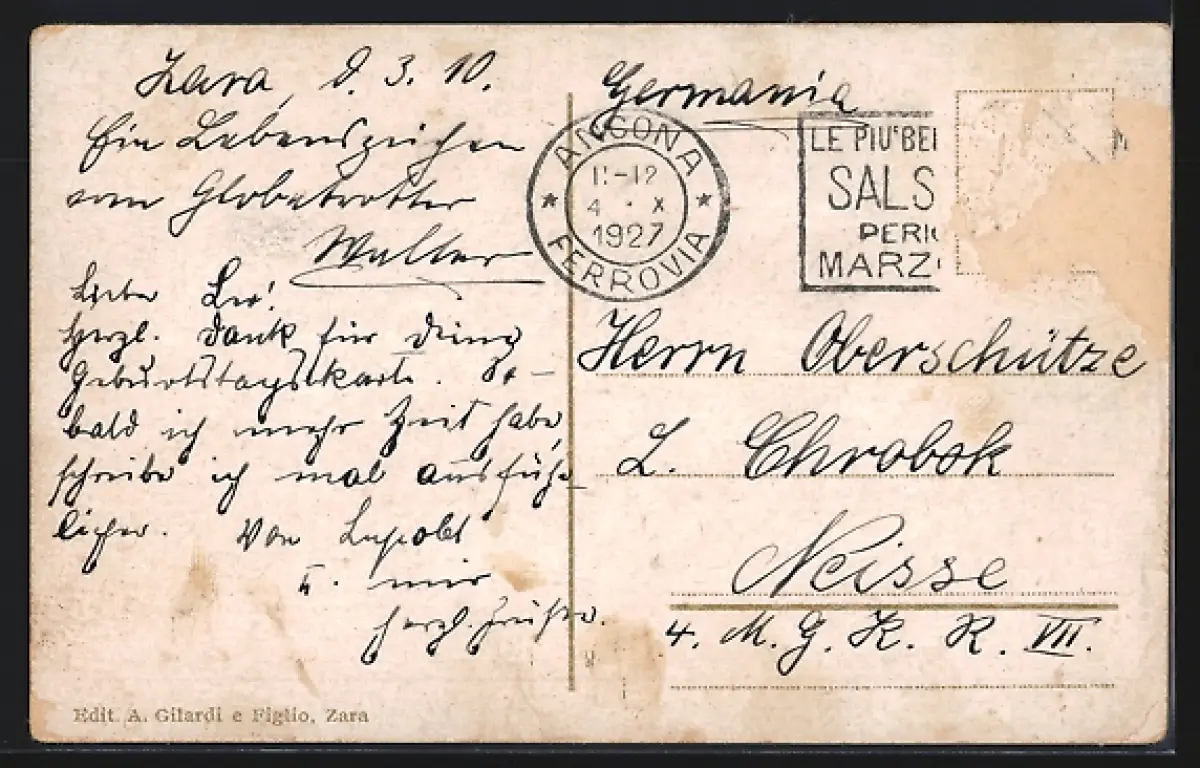 Zara, d. 3. 10.
Ein Lebenszeichen
vom Globetrotter
Walter
Lieber Leo!
Herzl. Dank für Deine
Geburtstagskarte. So-
bald ich mehr Zeit habe,
schreibe ich mal ausführ-
licher. Von
u. mir
herzl. Grüße.
Edit. A. Gilardi e Figlio, Zara
Germania
ANCONA
11-12
4 · X
1927
FERROVIA
LE PIU' BEL
SALS
PERI
MARZ
Herrn Oberschütze
L. Chrobok
Neisse
4. M. G. K. R. VII.